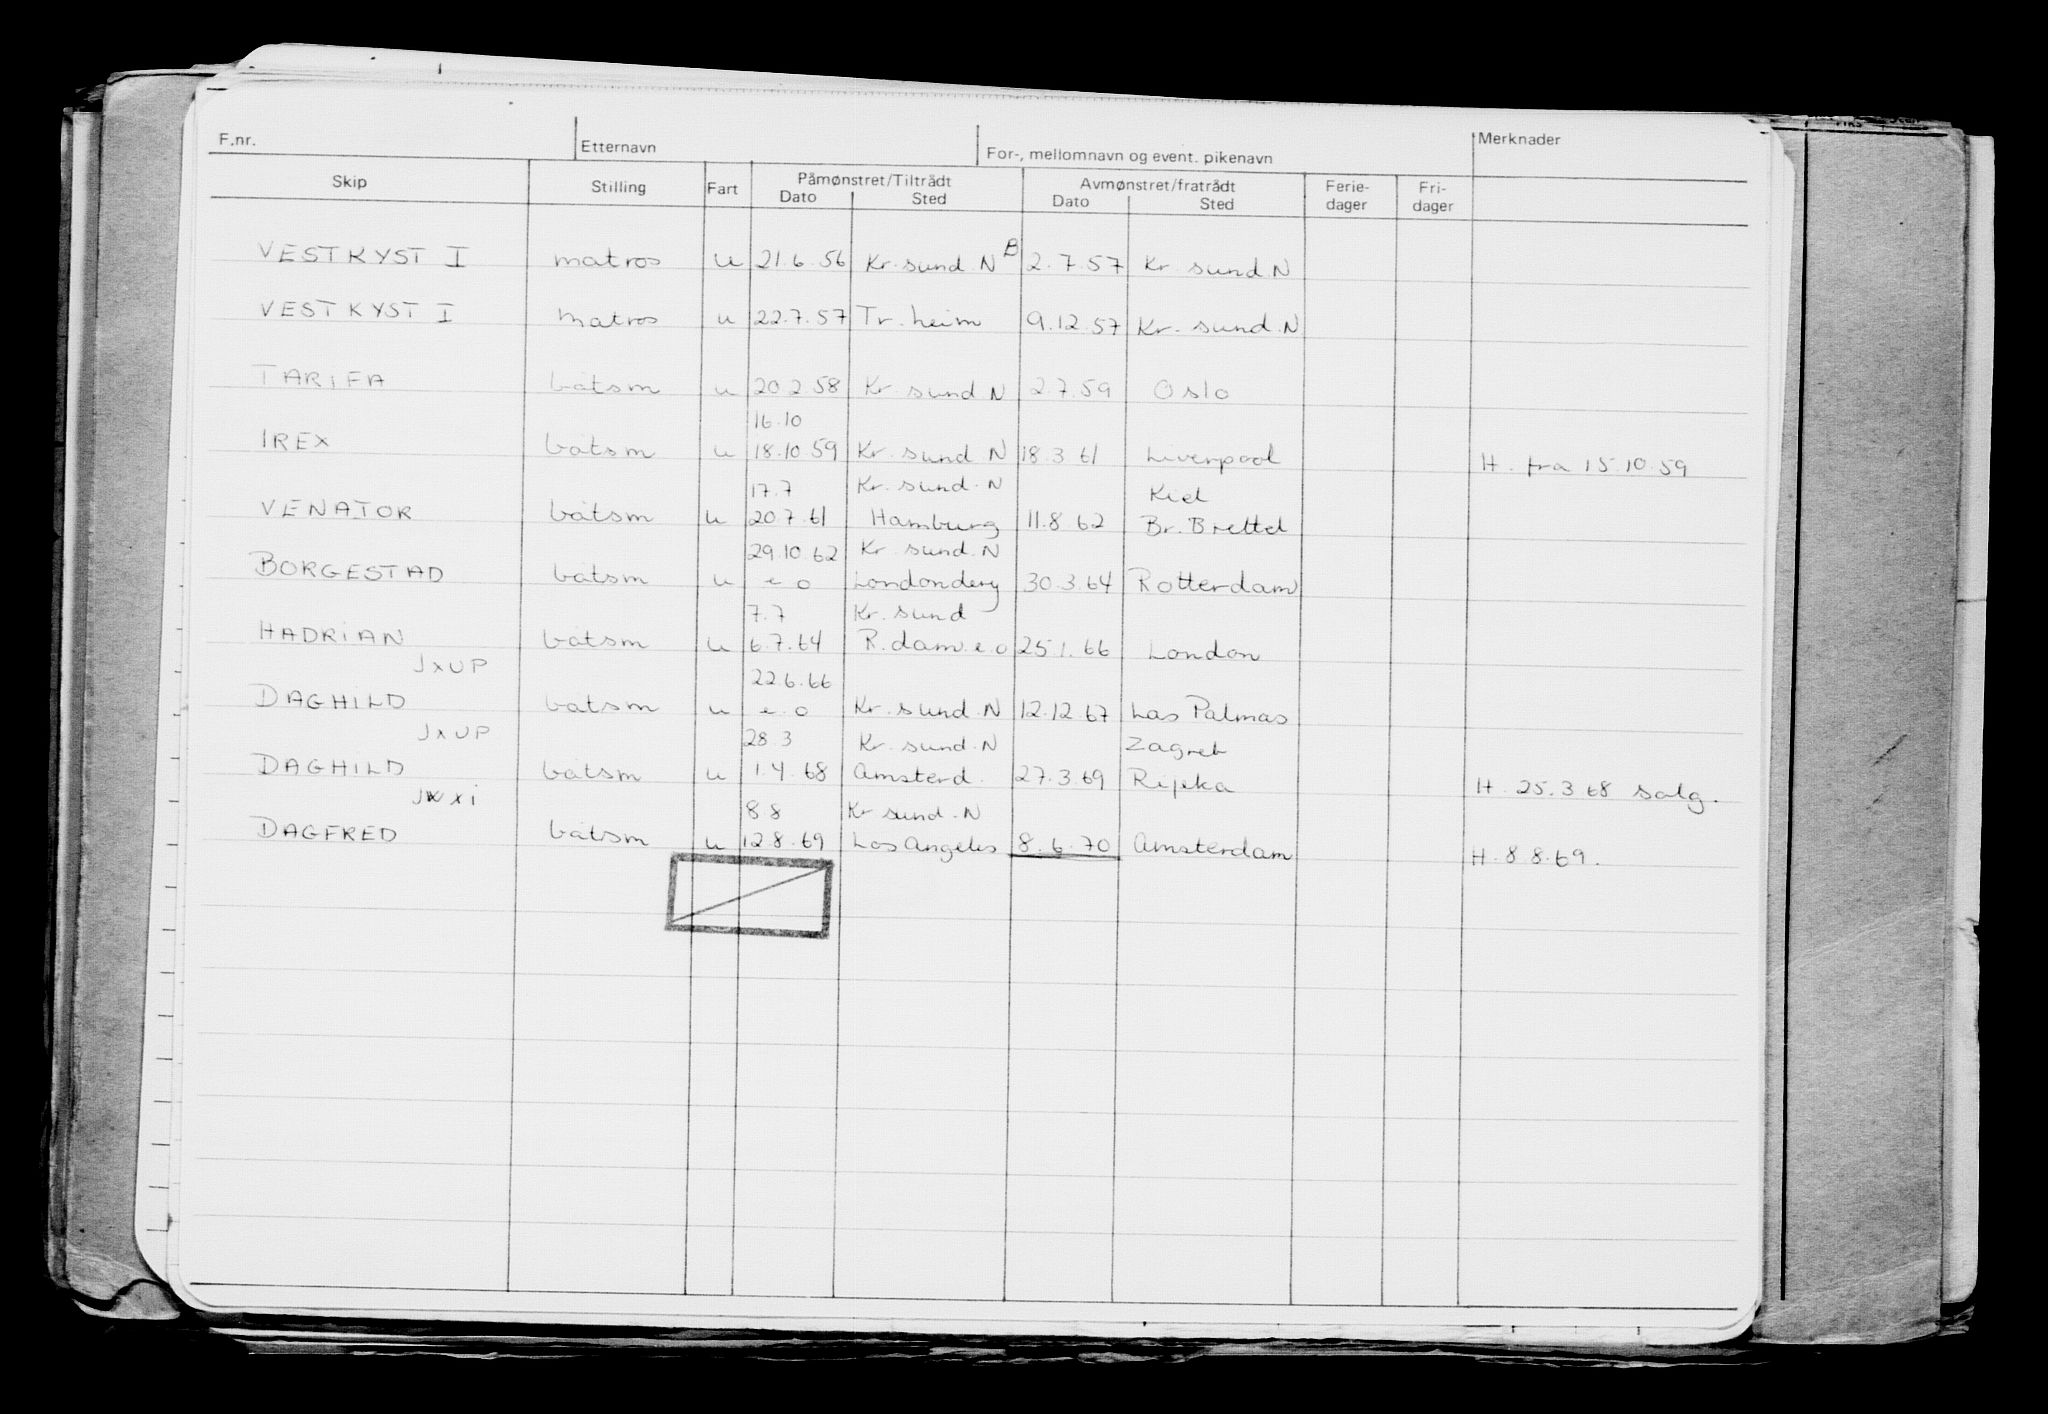 F.nr. Etternavn For-, mellomnavn og event. pikenavn Merknader
Skip Stilling Fart Påmønstret/Tiltrådt Avmønstret/fratrådt Ferie- Fri-
Dato Sted Dato Sted dager dager
VESTKYST I matros u 21.6.56 Kr.sund.N B 2.7.57 Kr. sund N
VESTKYST I matros u 22.7.57 Tr.heim 9.12.57 Kr. sund.N
TARIFA båtsm u 20.2.58 Kr. sund N 2.7.59 Oslo
16.10
IREX båtsm u 18.10.59 Kr. sund N 18.3.61 Liverpool H. fra 15.10.59
17.7 Kr. sund. N Kiel
VENATOR båtsm u 20.7.61 Hamburg 11.8.62 Br. Brettel
29.10.62 Kr. sund. N
BORGESTAD båtsm u e o Londondery 30.3.64 Rotterdam
7.7 Kr. sund
HADRIAN båtsm u 6.7.64 R.dam e.o 25.1.66 London
JXUP 22.6.66
DAGHILD båtsm u e.o Kr. sund. N 12.12.67 Las Palmas
JXUP 28.3 Kr. sund. N Zagreb
DAGHILD båtsm u 1.4.68 Amsterd. 27.3.69 Rijeka H. 25.3.68 salg.
JWXI 8.8 Kr sund. N
DAGFRED båtsm u 12.8.69 Los Angeles 8.6.70 Amsterdam H. 8.8.69.